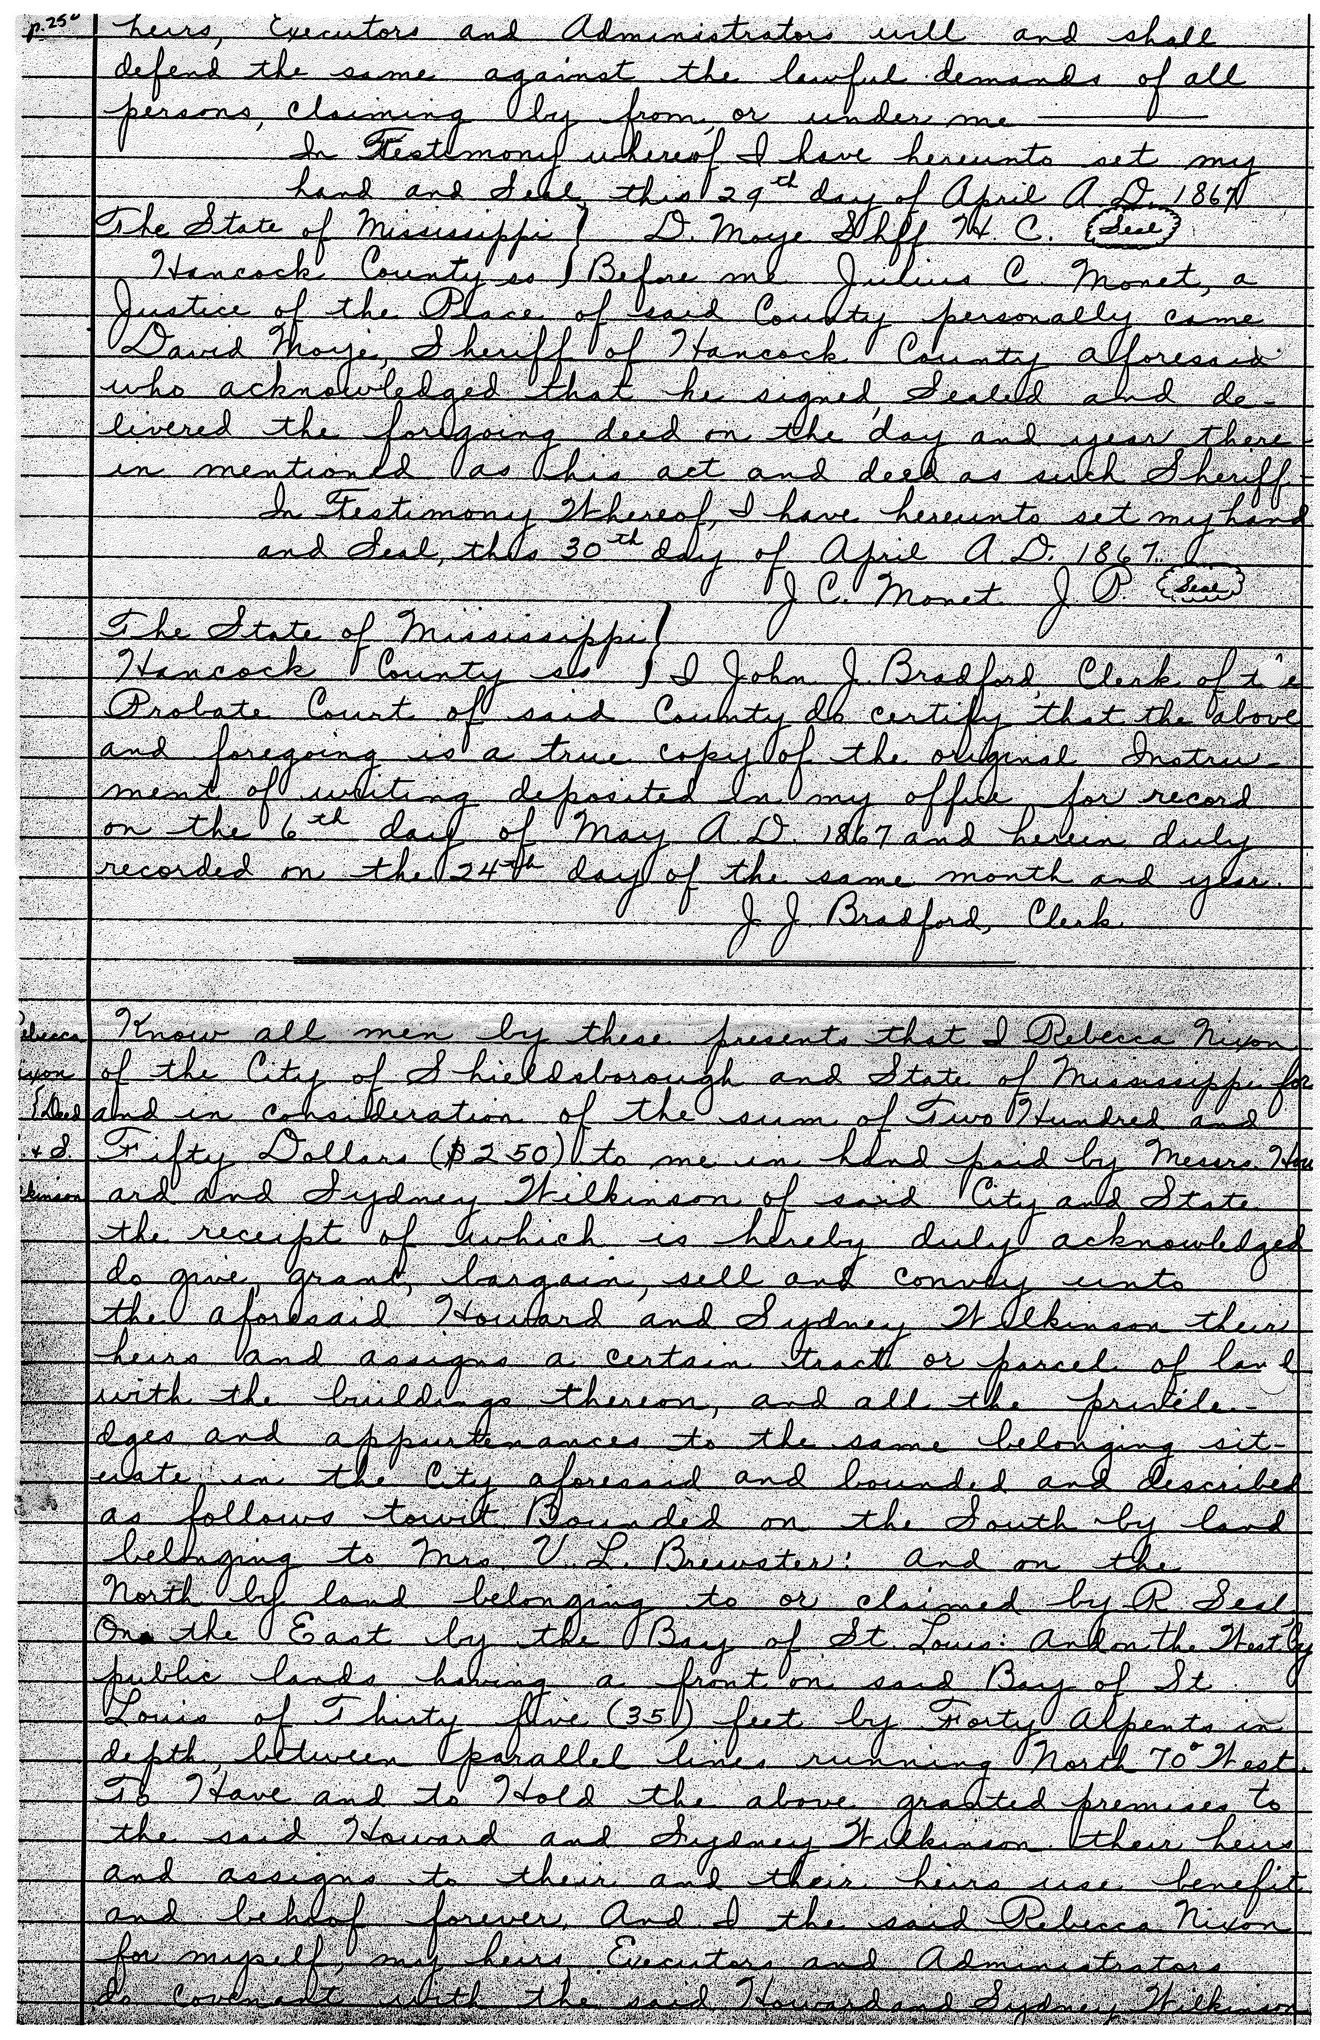 p.250
heirs, Executors and Administrators will and shall
defend the same against the lawful demands of all
persons, claiming by from, or under me
In Testimony whereof I have hereunto set my
hand and Seal, this 29th day of April A.D. 1867
The State of Mississippi } D. Moye Shff H. C. (Seal)
Hancock County ss } Before me Julius C. Monet, a
Justice of the Peace of said County personally came
David Moye, Sheriff of Hancock County aforesaid
who acknowledged that he signed, Sealed and de-
livered the foregoing deed on the day and year there-
in mentioned as his act and deed as such Sheriff.
In Testimony Whereof, I have hereunto set my hand
and Seal, this 30th day of April A.D. 1867.
J C. Monet J P. (Seal)
The State of Mississippi }
Hancock County ss } I John J. Bradford, Clerk of the
Probate Court of said County do certify that the above
and foregoing is a true copy of the original Instru-
ment of writing deposited in my office for record
on the 6th day of May A.D. 1867 and herein duly
recorded on the 24th day of the same month and year.
J. J. Bradford, Clerk
Know all men by these presents that I Rebecca Nixon
of the City of Shieldsborough and State of Mississippi for
} Deed and in consideration of the sum of Two Hundred and
& S. Fifty Dollars ($250) to me in hand paid by Messrs. How
ard and Sydney Wilkinson of said City and State
the receipt of which is hereby duly acknowledged
do give, grant, bargain, sell and convey unto
the aforesaid Howard and Sydney Wilkinson their
heirs and assigns a certain tract or parcel of land
with the buildings thereon, and all the privile-
dges and appurtenances to the same belonging sit-
uate in the City aforesaid and bounded and described
as follows towit. Bounded on the South by land
belonging to Mrs V. L. Brewster: and on the
North by land belonging to or claimed by R. Seal,
On the East by the Bay of St. Louis: And on the West by
public lands having a front on said Bay of St
Louis of Thirty five (35) feet by Forty Alpents in
depth, between parallel lines running North 70° West.
To Have and to Hold the above granted premises to
the said Howard and Sydney Wilkinson their heirs
and assigns to their and their heirs use benefit
and behoof forever. And I the said Rebecca Nixon
for myself, my heirs, Executors and Administrators
do covenant with the said Howard and Sydney Wilkinson